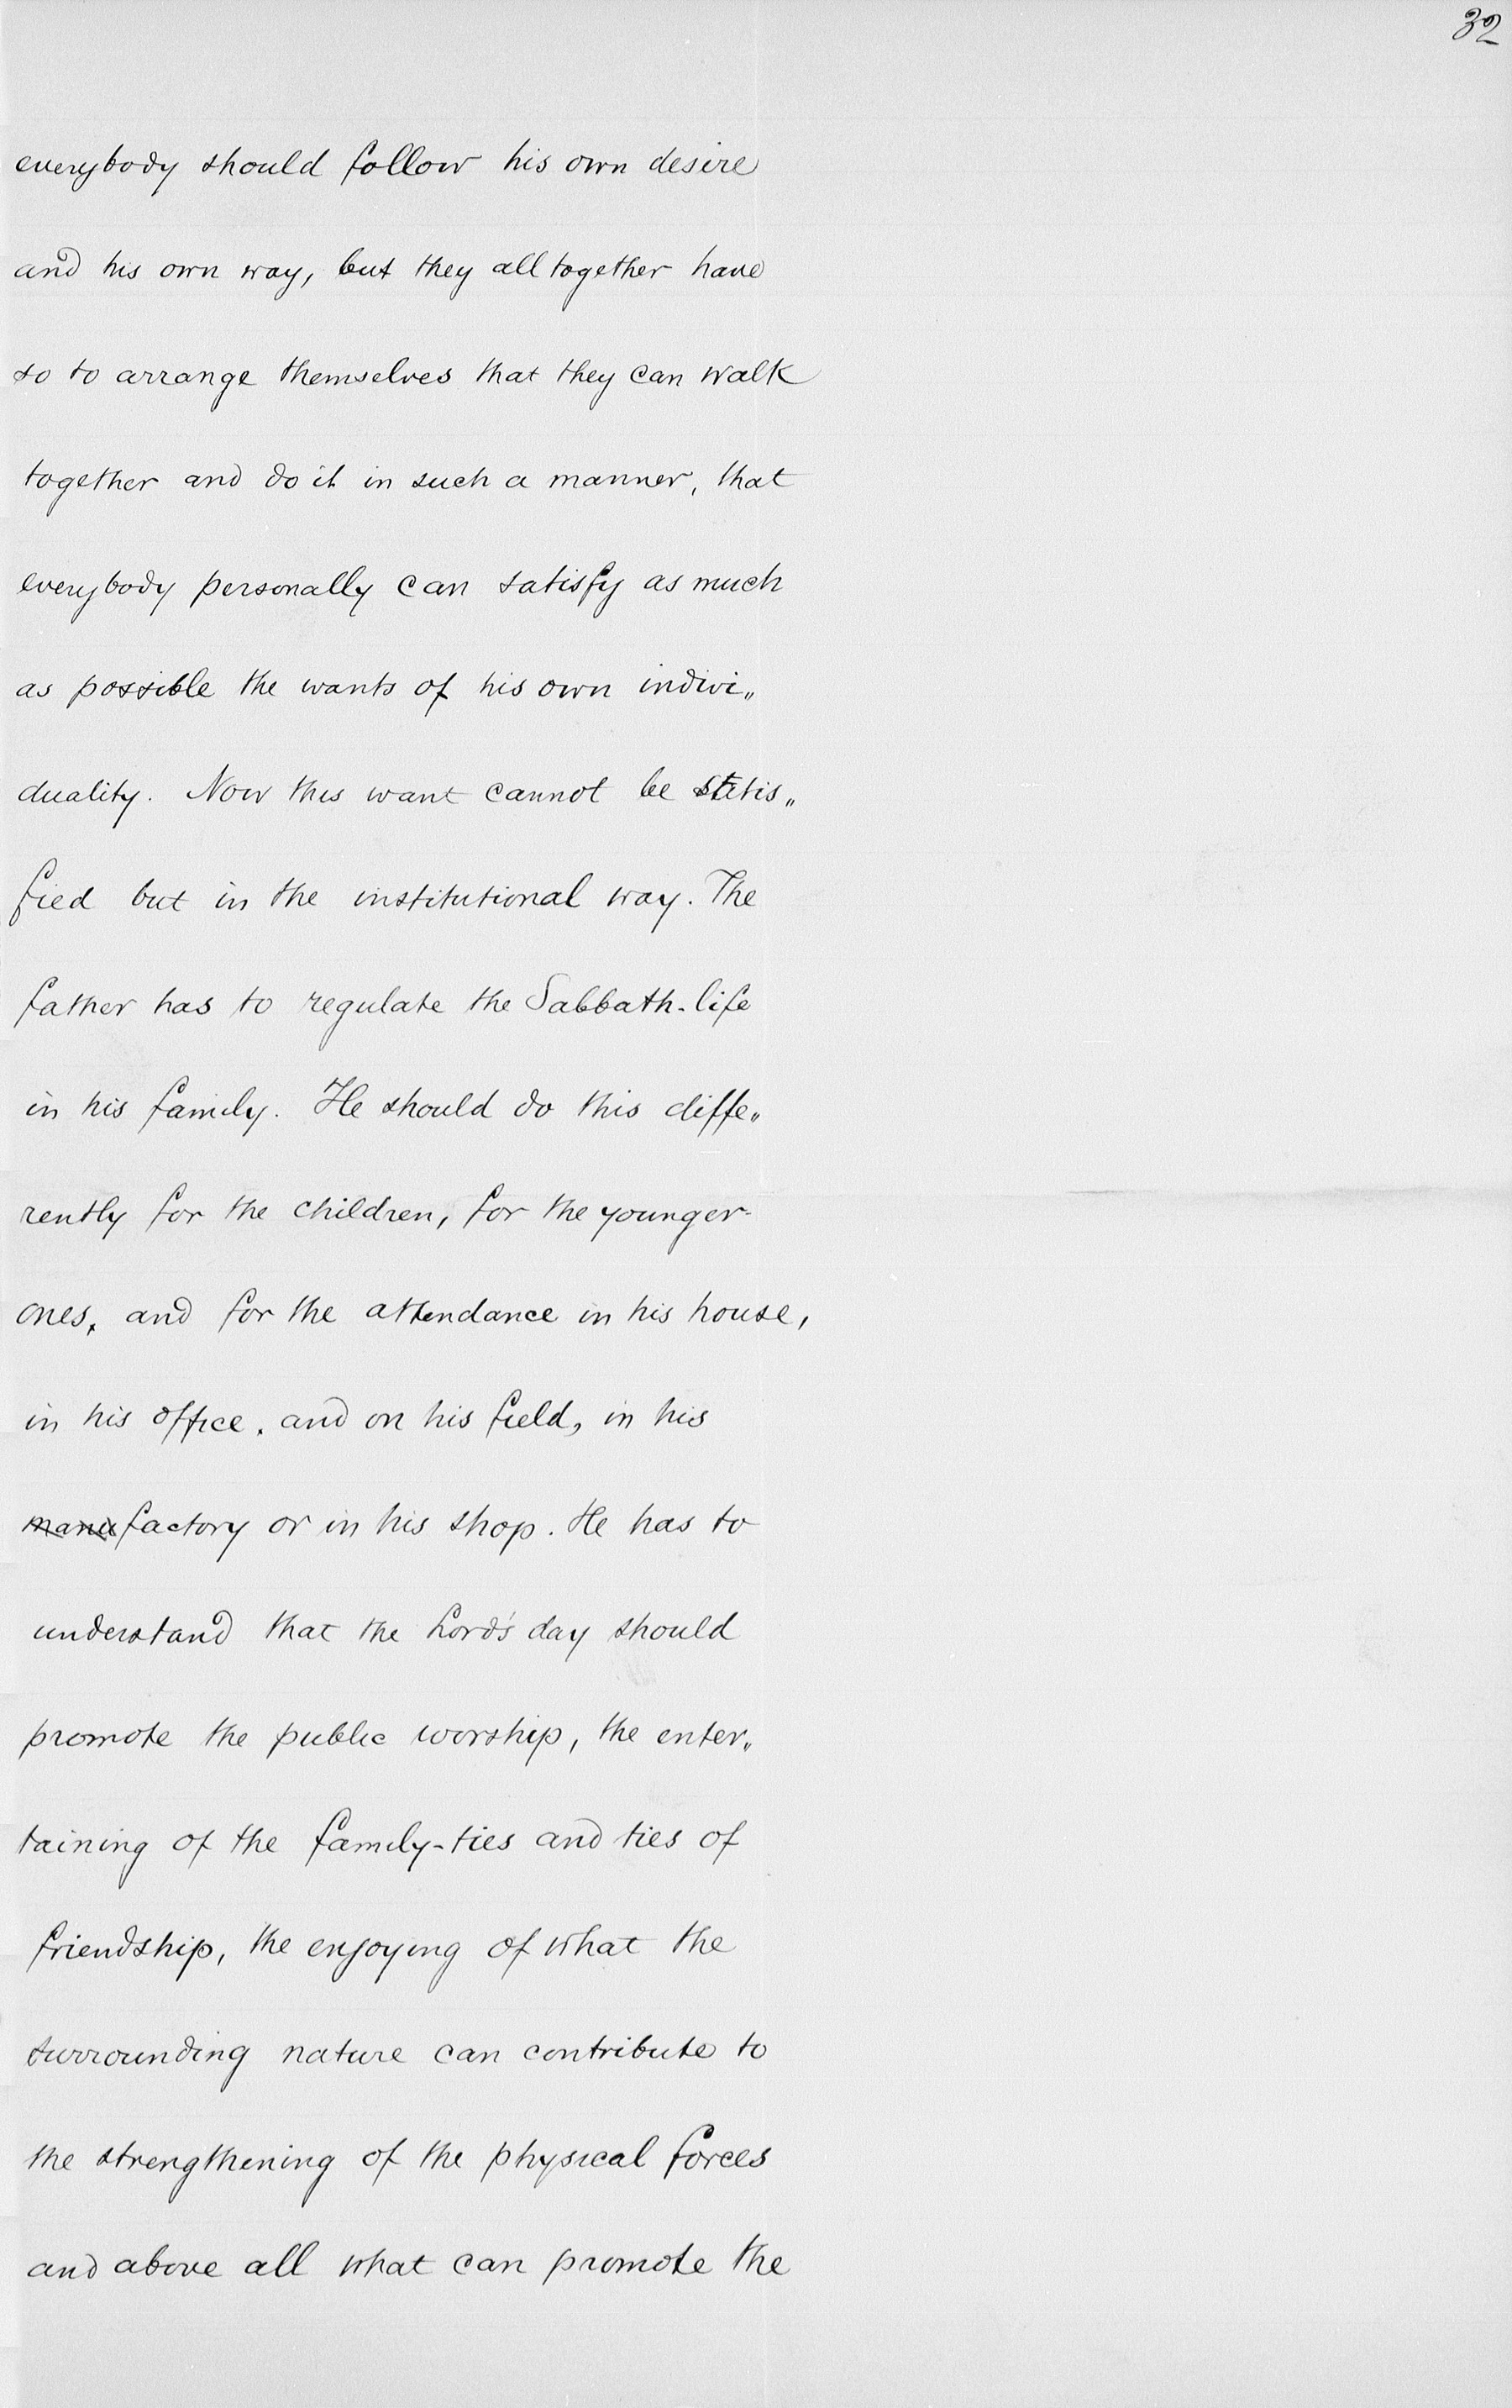 32
everybody should follow his own desire
and his own way, but they all together have
so to arrange themselves that they can walk
together and do it in such a manner, that
everybody personally can satisfy as much
as possible the wants of his own indivi„
duality. Now this want cannot be satis„
fied but in the institutional way. The
father has to regulate the Sabbath-life
in his family. He should do this diffe„
rently for the children, for the younger
ones, and for the attendance in his house,
in his office, and on his field, in his
manufactory or in his shop. He has to
understand that the Lord's day should
promote the public worship, the enter„
taining of the family-ties and ties of
friendship, the enjoying of what the
surrounding nature can contribute to
the strengthening of the physical forces
and above all what can promote the